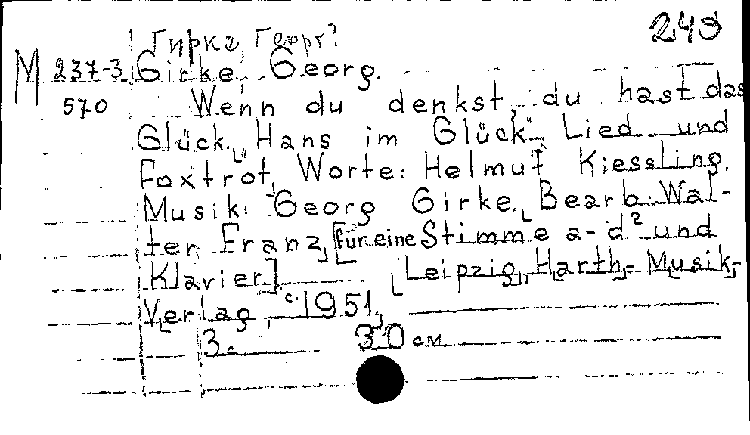 249
Гирке Георг?
M 237-3 Girke, Georg.
570 Wenn du denkst, du hast das
Glück. Hans im Glück. Lied und
Foxtrot. Worte: Helmut Kiessling.
Musik: Georg Girke. Bearb. Wal-
ter Franz, [für eine Stimme a-d² und
Klavier]. Leipzig, Harth-Musik-
Verlag, c. 1951.
3. 30 см